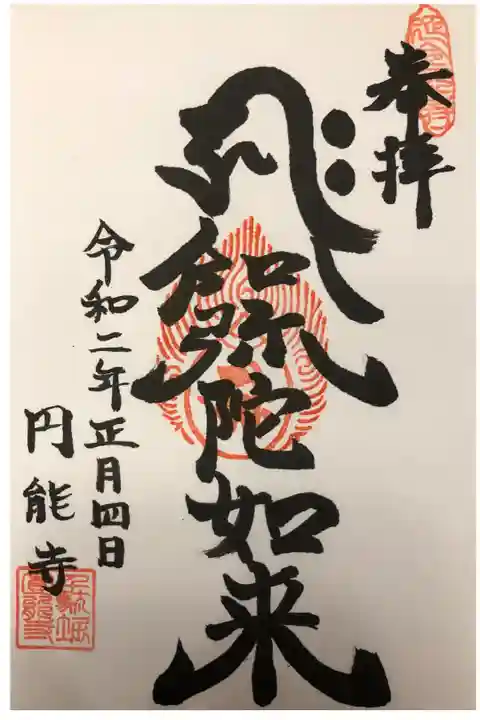 奉拝
阿弥陀如来
令和二年正月四日
円能寺